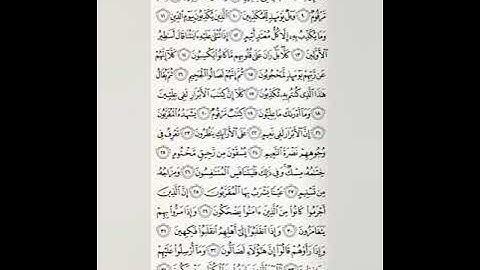 مَّرْقُومٌ ٩ وَيْلٌ يَوْمَئِذٍ لِّلْمُكَذِّبِينَ ١٠ الَّذِينَ يُكَذِّبُونَ بِيَوْمِ الدِّينِ ١١
وَمَا يُكَذِّبُ بِهِ إِلَّا كُلُّ مُعْتَدٍ أَثِيمٍ ١٢ إِذَا تُتْلَىٰ عَلَيْهِ ءَايَاتُنَا قَالَ أَسَاطِيرُ
الْأَوَّلِينَ ١٣ كَلَّا بَلْ رَانَ عَلَىٰ قُلُوبِهِم مَّا كَانُوا يَكْسِبُونَ ١٤ كَلَّا إِنَّهُمْ
عَن رَّبِّهِمْ يَوْمَئِذٍ لَّمَحْجُوبُونَ ١٥ ثُمَّ إِنَّهُمْ لَصَالُوا الْجَحِيمِ ١٦ ثُمَّ يُقَالُ
هَٰذَا الَّذِي كُنتُم بِهِ تُكَذِّبُونَ ١٧ كَلَّا إِنَّ كِتَابَ الْأَبْرَارِ لَفِي عِلِّيِّينَ
١٨ وَمَا أَدْرَاكَ مَا عِلِّيُّونَ ١٩ كِتَابٌ مَّرْقُومٌ ٢٠ يَشْهَدُهُ الْمُقَرَّبُونَ
٢١ إِنَّ الْأَبْرَارَ لَفِي نَعِيمٍ ٢٢ عَلَى الْأَرَائِكِ يَنظُرُونَ ٢٣ تَعْرِفُ فِي
وُجُوهِهِمْ نَضْرَةَ النَّعِيمِ ٢٤ يُسْقَوْنَ مِن رَّحِيقٍ مَّخْتُومٍ ٢٥
خِتَامُهُ مِسْكٌ وَفِي ذَٰلِكَ فَلْيَتَنَافَسِ الْمُتَنَافِسُونَ ٢٦ وَمِزَاجُهُ
مِن تَسْنِيمٍ ٢٧ عَيْنًا يَشْرَبُ بِهَا الْمُقَرَّبُونَ ٢٨ إِنَّ الَّذِينَ
أَجْرَمُوا كَانُوا مِنَ الَّذِينَ ءَامَنُوا يَضْحَكُونَ ٢٩ وَإِذَا مَرُّوا بِهِمْ
يَتَغَامَزُونَ ٣٠ وَإِذَا انقَلَبُوا إِلَىٰ أَهْلِهِمُ انقَلَبُوا فَكِهِينَ ٣١
وَإِذَا رَأَوْهُمْ قَالُوا إِنَّ هَٰؤُلَاءِ لَضَالُّونَ ٣٢ وَمَا أُرْسِلُوا عَلَيْهِمْ